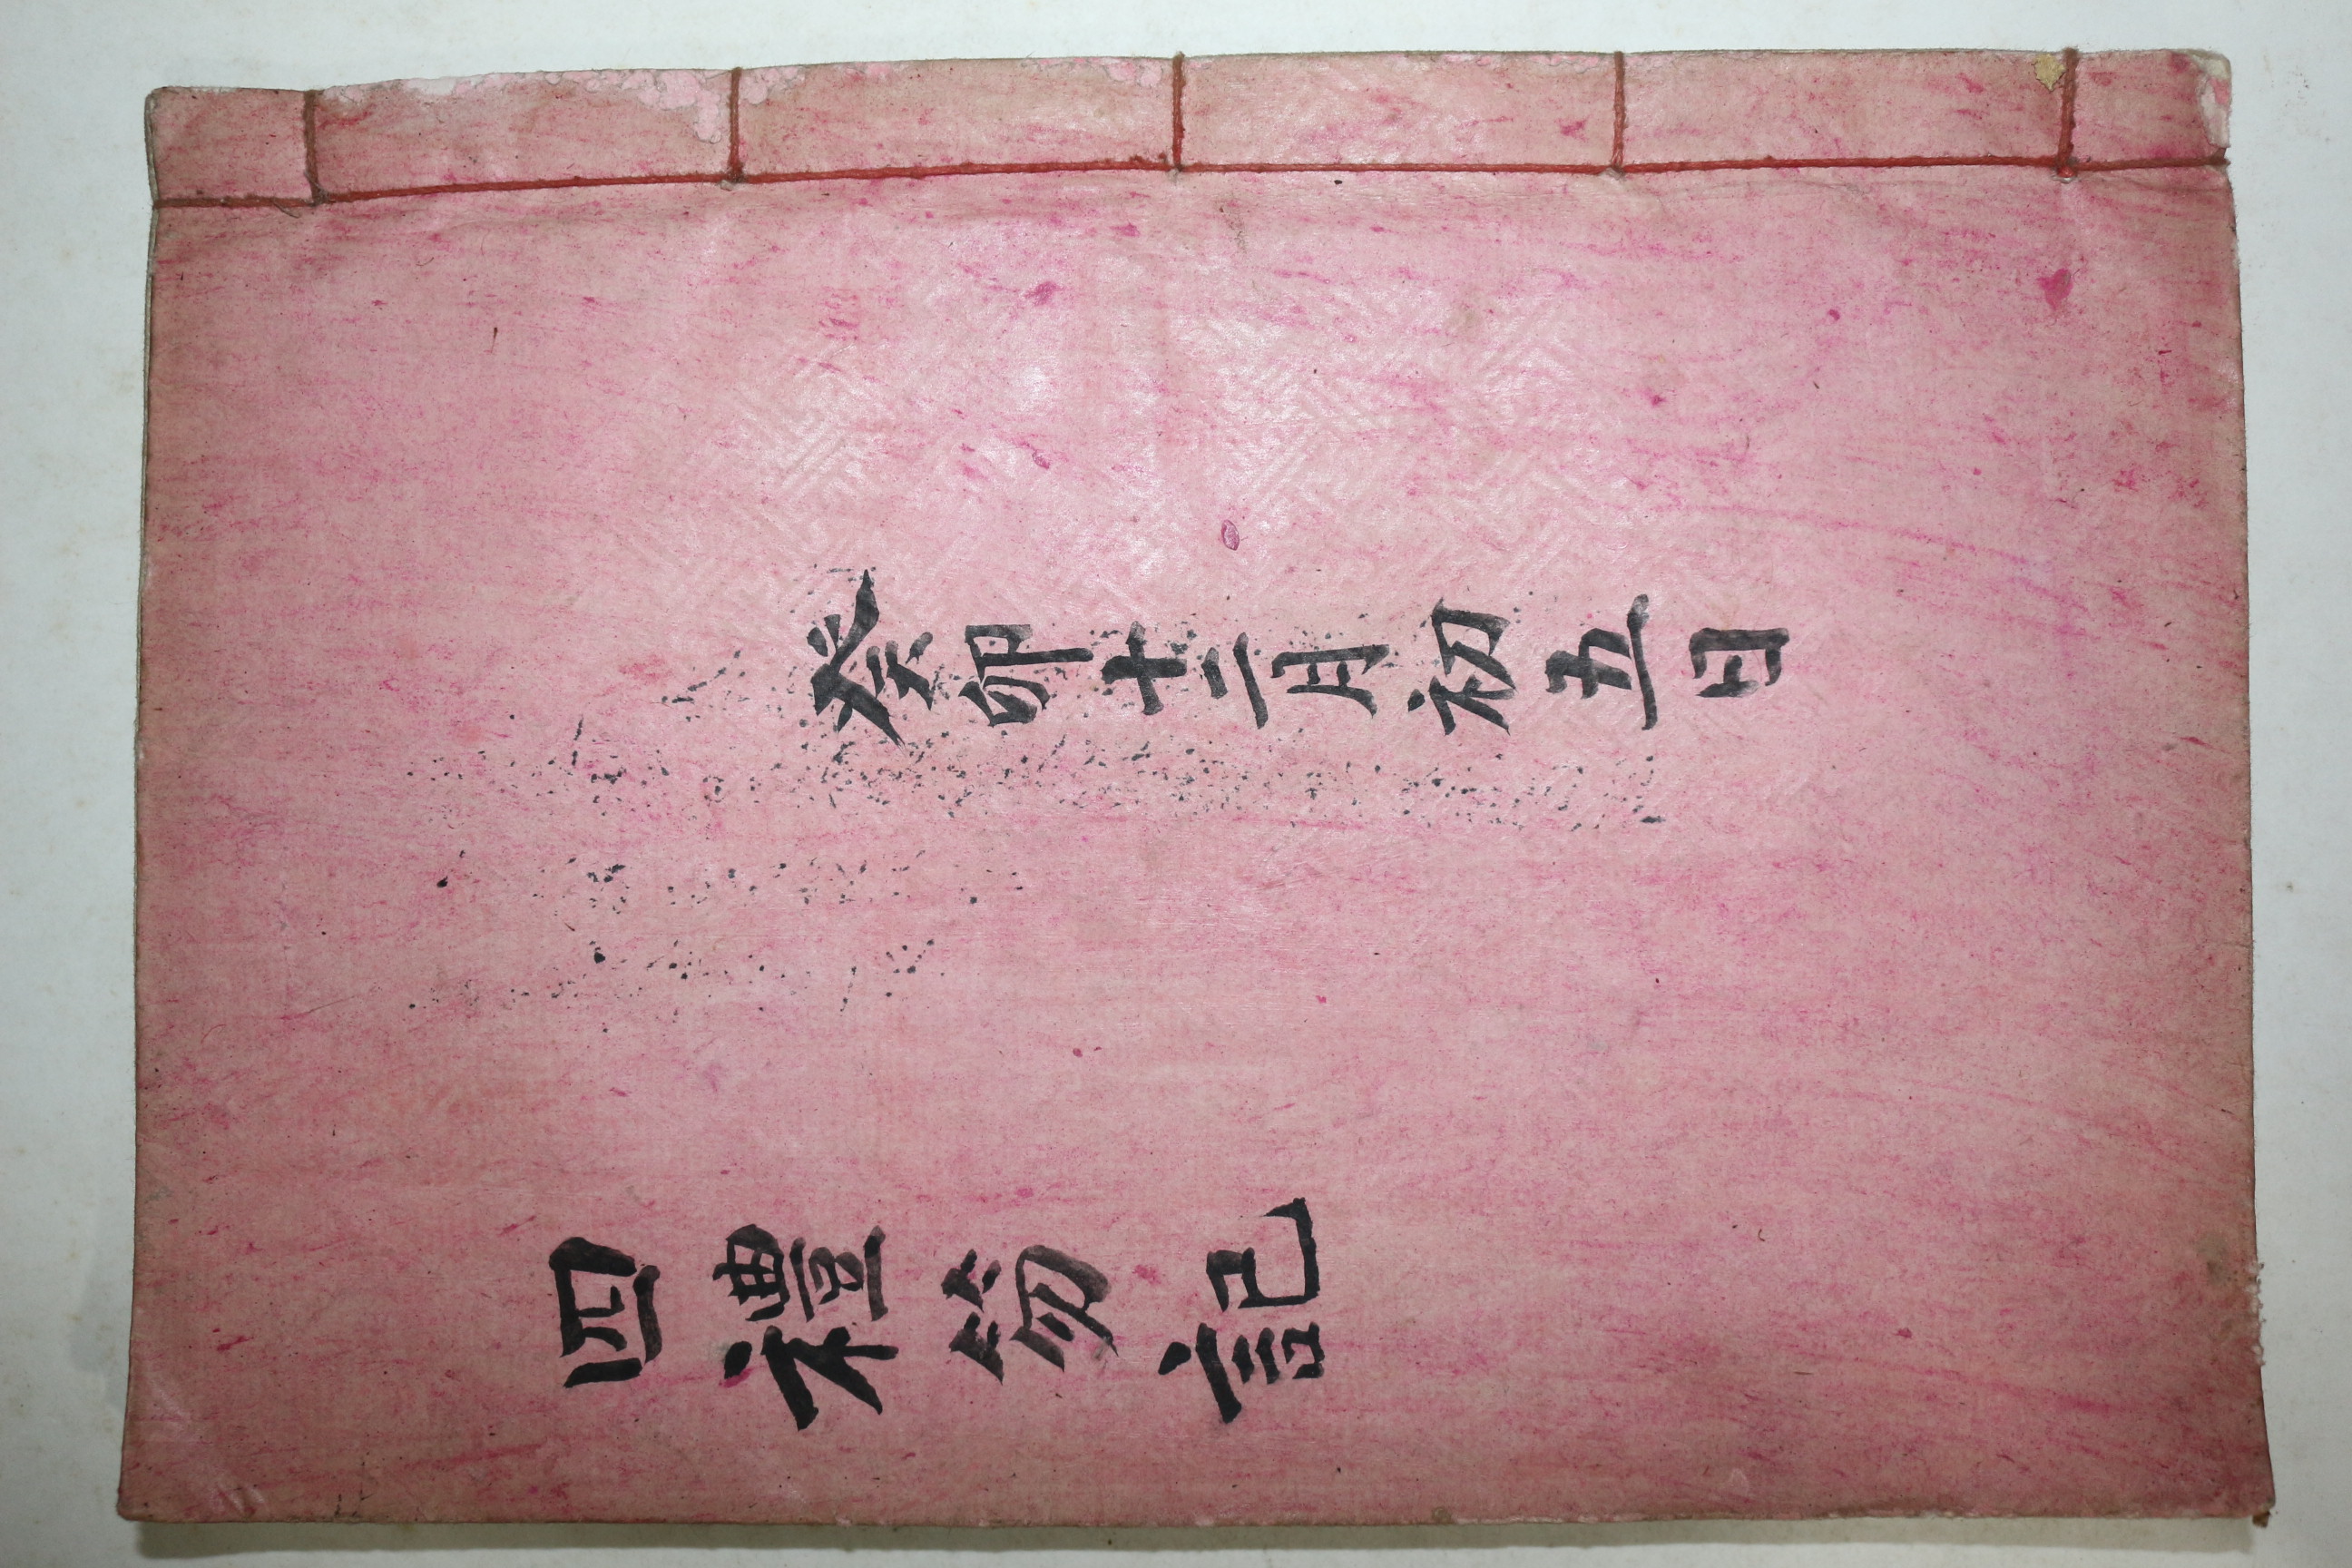 癸卯十二月初五日
四禮笏記